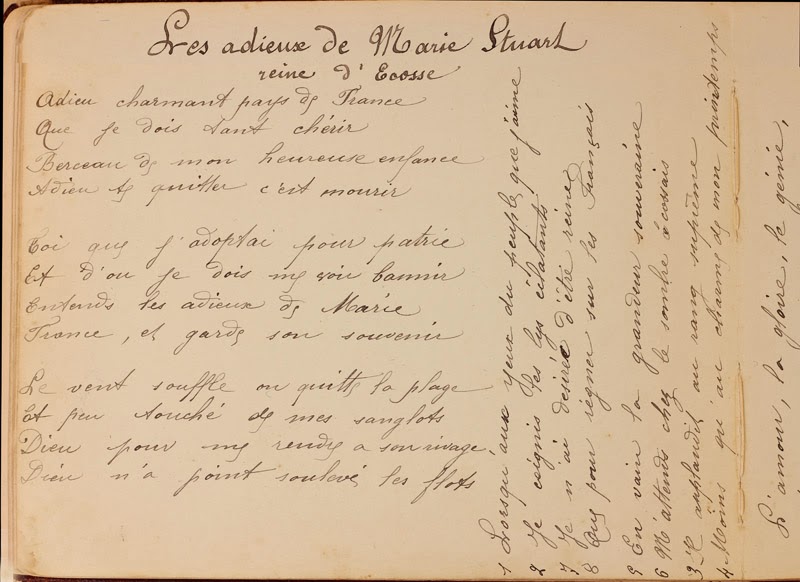 Les adieux de Marie Stuart
reine d'Ecosse
Adieu charmant pays de France
Que je dois tant chérir
Berceau de mon heureuse enfance
Adieu te quitter c'est mourir
Toi que j'adoptai pour patrie
Et d'ou je dois me voir bannir
Entends les adieux de Marie
France, et garde son souvenir
Le vent souffle on quitte la plage
Et peu touché de mes sanglots
Dieu pour me rendre a son rivage
Dieu n'a point soulevé les flots
1 Lorsqu'aux yeux du peuple que j'aime
2 Je ceignis les lys éclatants
7 Je n'ai désiré d'être reine
8 Que pour régner sur les Français
5 En vain la grandeur souveraine
6 M'attends chez le sombre écossais
3 Il applaudit au rang suprême
4 Moins qu'au charme de mon printemps
L'amour, la gloire, le génie,